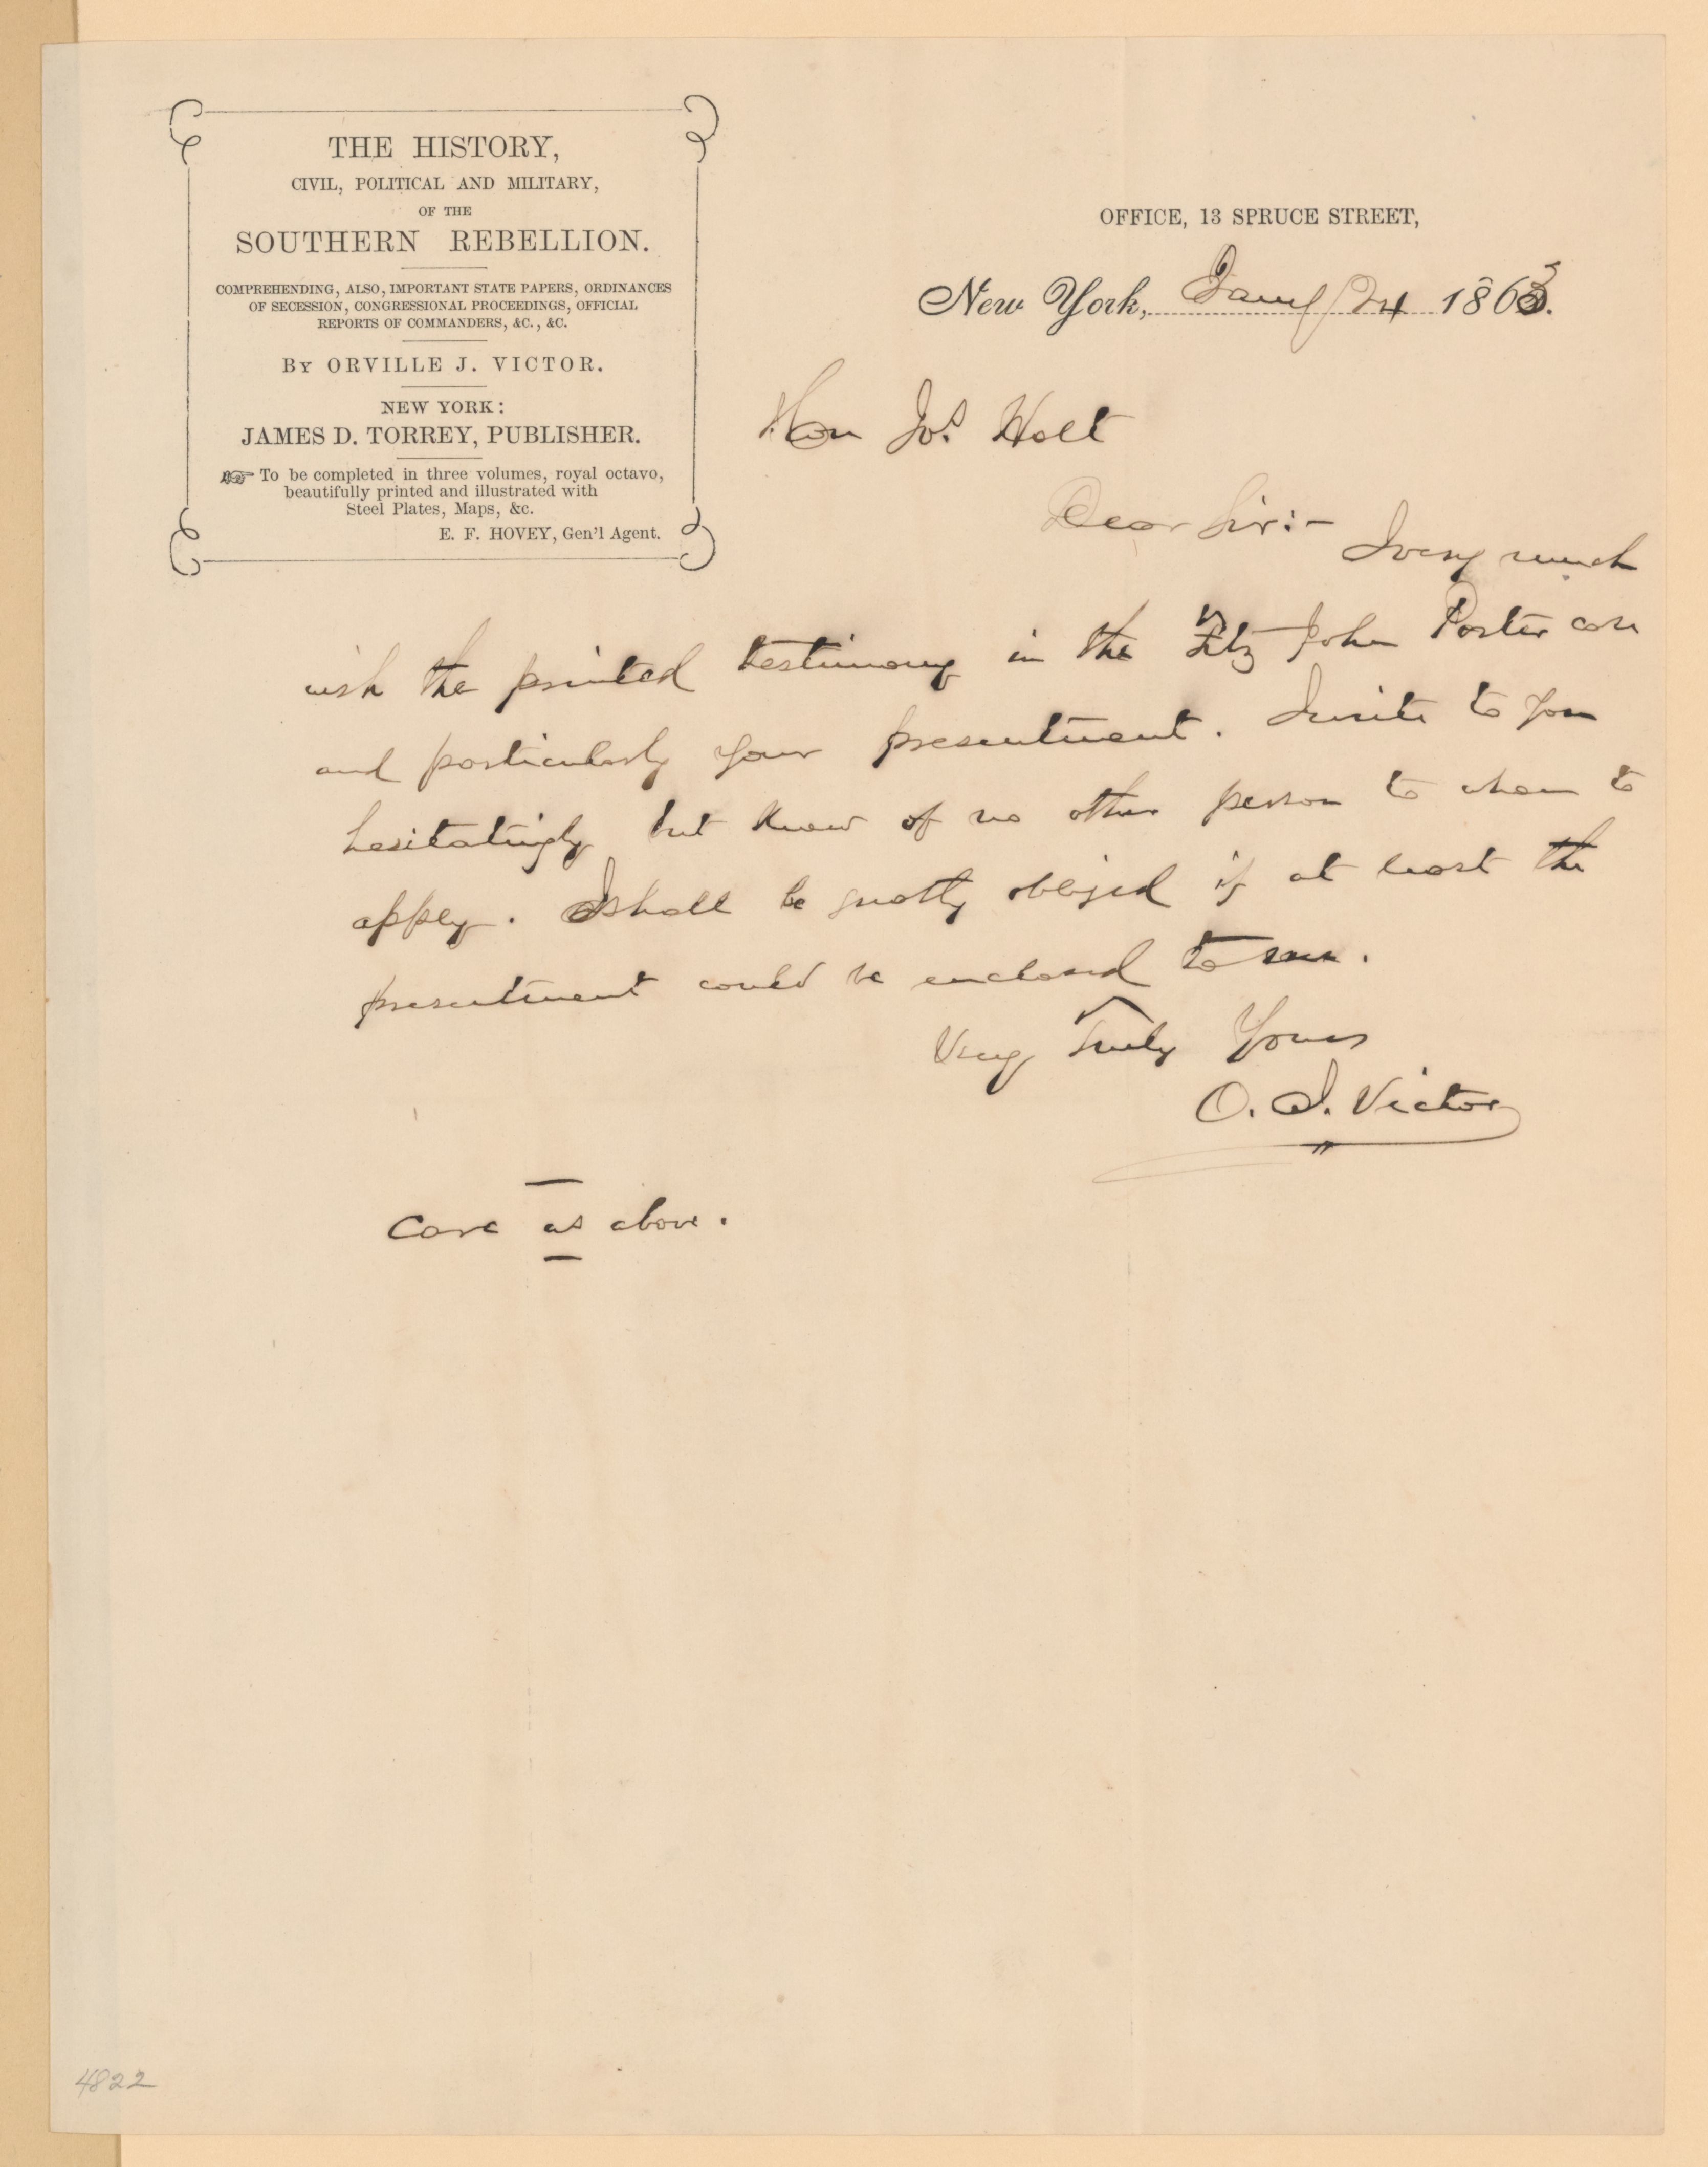 THE HISTORY,
CIVIL, POLITICAL AND MILITARY,
OF THE
SOUTHERN REBELLION.
COMPREHENDING, ALSO, IMPORTANT STATE PAPERS, ORDINANCES
OF SECESSION, CONGRESSIONAL PROCEEDINGS, OFFICIAL
REPORTS OF COMMANDERS, &C., &C.
BY ORVILLE J. VICTOR.
NEW YORK:
JAMES D. TORREY, PUBLISHER.
☞ To be completed in three volumes, royal octavo,
beautifully printed and illustrated with
Steel Plates, Maps, &c.
E. F. HOVEY, Gen'l Agent.
OFFICE, 13 SPRUCE STREET,
New York, Jany 24 1863.
Hon Jos. Holt
Dear Sir:- I very much
wish the printed testimony in the Fitz John Porter case
and particularly your presentment. I write to you
hesitatingly but know of no other person to whom to
apply. I shall be greatly obliged if at least the
presentment could be enclosed to me.
Very Truly Yours
O. J. Victor
Care as above.
4822